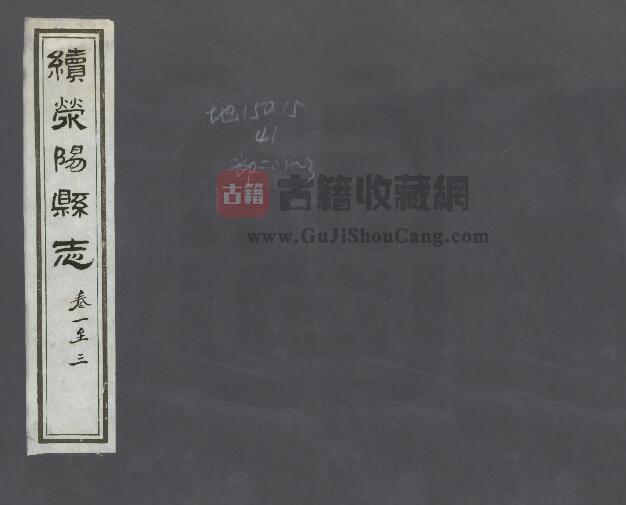 續滎陽縣志
卷一至三
地150.15
41
古籍
古籍收藏網
www.GuJiShouCang.com